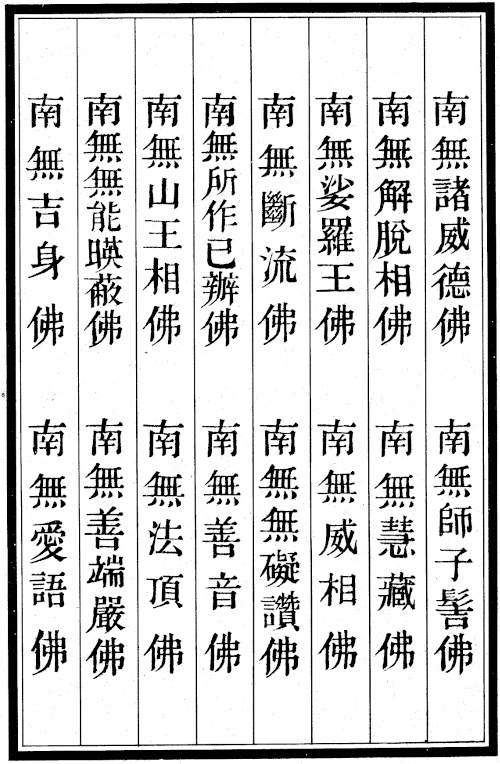 南無諸威德佛　南無師子髻佛
南無解脫相佛　南無慧藏佛
南無娑羅王佛　南無威相佛
南無斷流佛　南無無礙讚佛
南無所作已辦佛　南無善音佛
南無山王相佛　南無法頂佛
南無無能暎蔽佛　南無善端嚴佛
南無吉身佛　南無愛語佛